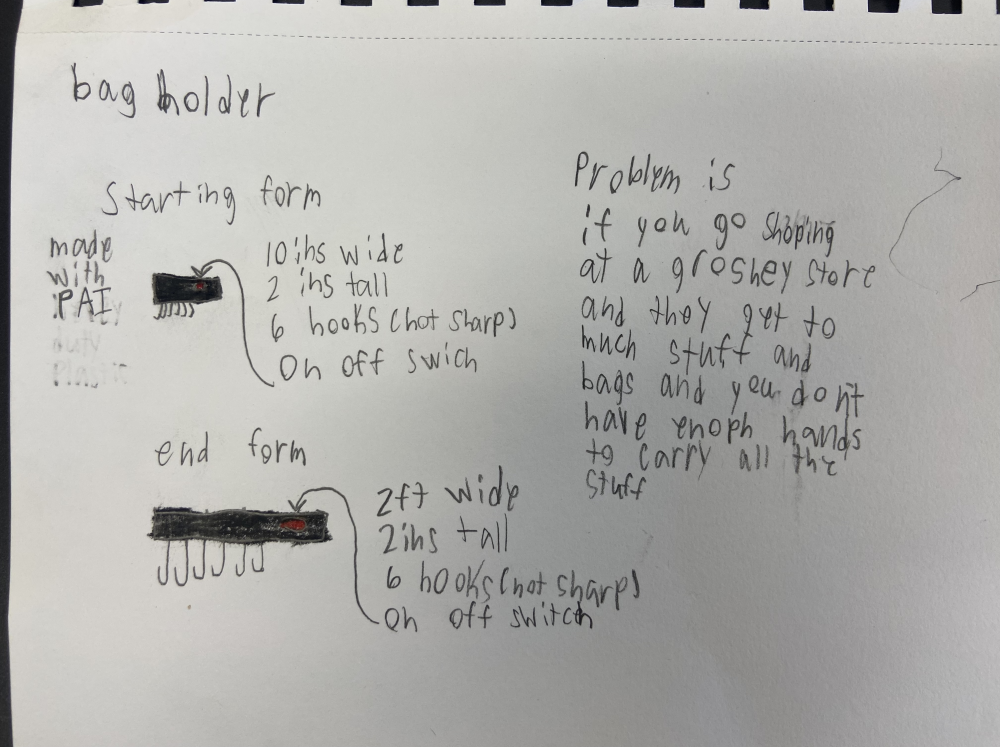 bag holder
Starting form
made
with
PAI
10 ihs wide
2 ihs tall
6 hooks (not sharp)
On off swich
end form
2ft wide
2 ihs tall
6 hooks (not sharp)
On off switch
Problem is
if you go shoping
at a groshey store
and they get to
much stuff and
bags and you don't
have enoph hands
to carry all the
stuff